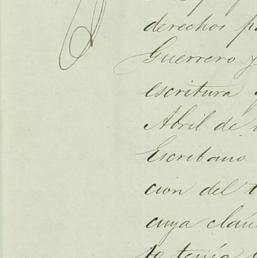 derechos p
Guerrero y
escritura
Abril de
Escribano
cion del t
cuya cláu
to tenía